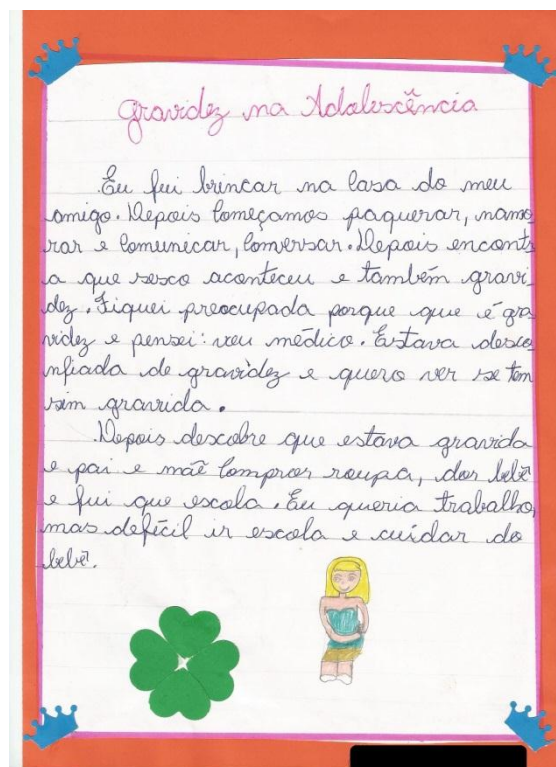 Gravidez na Adolescência
Eu fui brincar na casa do meu
amigo. Depois começamos paquerar, namo
rar e comunicar, comversar. Depois encontr
a que sesco aconteceu e também gravi
dez. Fiquei preocupada porque que é gra
videz e pensei: vou médico. Estava desco
nfiada de gravidez e quero ver se tem
sim gravida.
Depois descobre que estava gravida
e pai e mãe compror roupa, dor bebê
e fui que escola. Eu queria trabalho,
mas defícil ir escola e cuidar do
bebê.